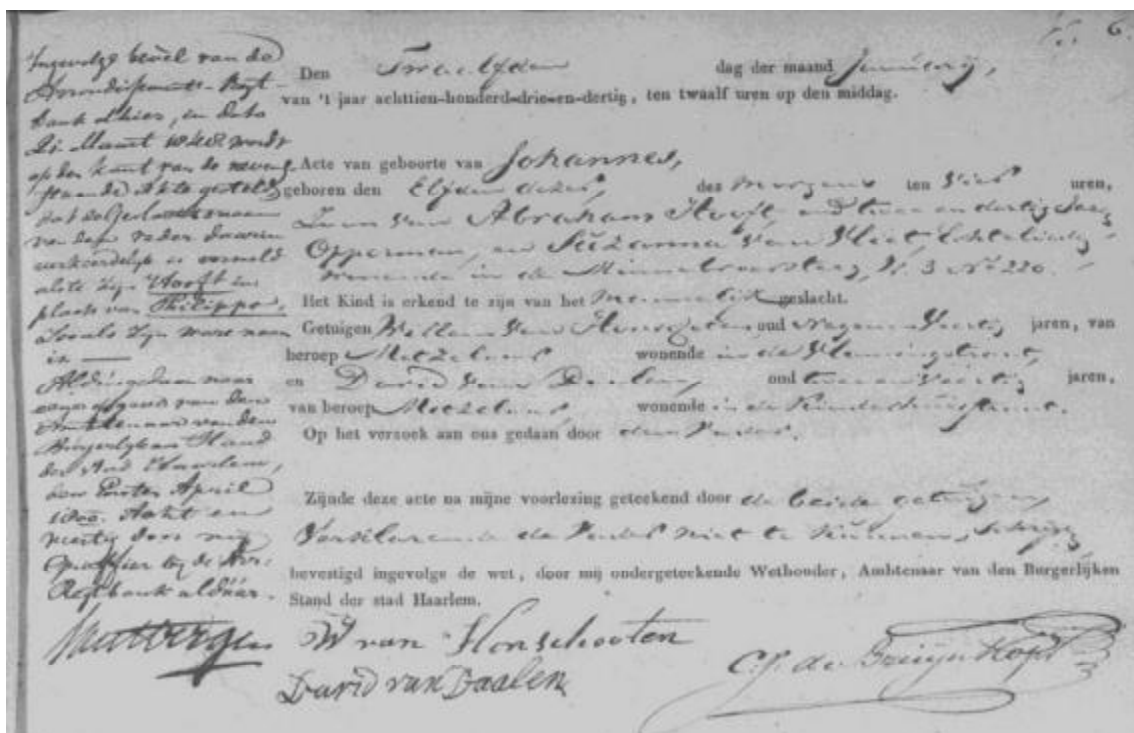 6.
Ingevolge bevel van de
Arrondissements-Regt-
bank alhier, in dato
21 Maart 1848 wordt
op den kant van de nevens-
staande Akte gesteld
dat de Geslachtsnaam
van den vader daarin
verkeerdelijk is vermeld
als te zijn Hooft in
plaats van Philippo,
zooals zijn ware naam
is —
Aldus gedaan naar
van den
Ambtenaar van den
Burgerlijken Stand
der stad Haarlem,
den Eersten April
1800 Acht en
veertig door mij
Griffier bij de Arr:
Regtbank aldaar.
Den Twaalfden dag der maand Januarij,
van 't jaar achttien-honderd-drie-en-dertig, ten twaalf uren op den middag.
Acte van geboorte van Johannes,
geboren den Elfden dezer, des morgens ten vier uren,
Zoon van Abraham Hooft, oud twee en dertig Jaar,
Opperman, en Suzanna van Vliet, Echtelieden
wonende in de W. 3 No 220.
Het Kind is erkend te zijn van het Mannelijk geslacht.
Getuigen Willem van Honschoten oud Negen en Veertig jaren, van
beroep Metzelaar wonende in de Vlamingstraat,
en David van Daalen, oud twee en Veertig jaren,
van beroep Metzelaar wonende in de
Op het verzoek aan ons gedaan door den Vader.
Zijnde deze acte na mijne voorlezing geteekend door de beide getuigen,
Verklarende de Vader niet te kunnen schrijven
bevestigd ingevolge de wet, door mij ondergeteekende Wethouder, Ambtenaar van den Burgerlijken
Stand der stad Haarlem.
W van Honschooten
David van Daalen
C.J. de Bruijn Kops